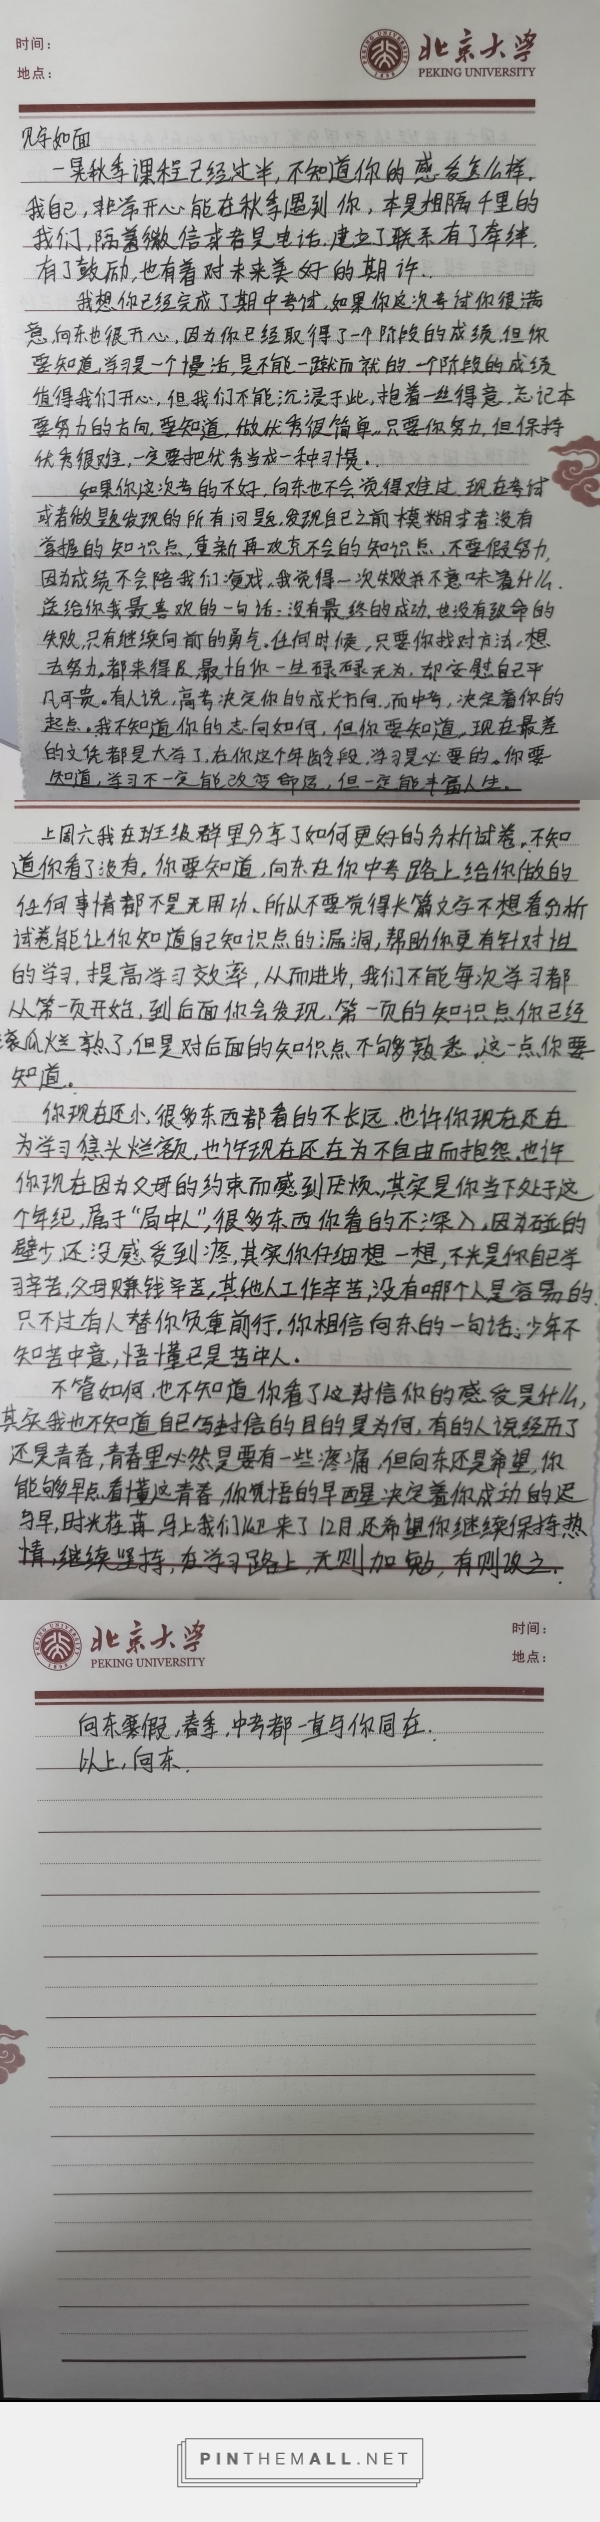 时间：
地点：
北京大学
PEKING UNIVERSITY
见字如面
一晃秋季课程已经过半，不知道你的感受怎么样.
我自己，非常开心能在秋季遇到你，本是相隔千里的
我们，隔着微信或者是电话，建立了联系有了牵绊，
有了鼓励，也有着对未来美好的期许..
我想你已经完成了期中考试，如果你这次考试你很满
意，向东也很开心，因为你已经取得了一个阶段的成绩，但你
要知道，学习是一个慢活，是不能一蹴而就的，一个阶段的成绩
值得我们开心，但我们不能沉浸于此，抱着一丝得意，忘记本
要努力的方向，要知道，做优秀很简单，只要你努力，但保持
优秀很难，一定要把优秀当成一种习惯..
如果你这次考的不好，向东也不会觉得难过，现在考试
或者做题发现的所有问题，发现自己之前模糊或者没有
掌握的知识点，重新再攻克不会的知识点，不要假努力，
因为成绩不会陪我们演戏，我觉得一次失败并不意味着什么.
送给你我最喜欢的一句话：没有最终的成功，也没有致命的
失败，只有继续向前的勇气，任何时候，只要你找对方法，想
去努力，都来得及，最怕你一生碌碌无为，却安慰自己平
凡可贵。有人说，高考决定你的成长方向，而中考，决定着你的
起点。我不知道你的志向如何，但你要知道，现在最差
的文凭都是大学了，在你这个年龄段，学习是必要的。你要
知道，学习不一定能改变命运，但一定能丰富人生。
上周六我在班级群里分享了如何更好的分析试卷，不知
道你看了没有，你要知道，向东在你中考路上给你做的
任何事情都不是无用功、所以不要觉得长篇文字不想看分析
试卷能让你知道自己知识点的漏洞，帮助你更有针对性
的学习，提高学习效率，从而进步，我们不能每次学习都
从第一页开始，到后面你会发现，第一页的知识点你已经
滚瓜烂熟了，但是对后面的知识点不够熟悉，这一点你要
知道。
你现在还小，很多东西都看的不长远，也许你现在还在
为学习焦头烂额，也许现在还在为不自由而抱怨，也许
你现在因为父母的约束而感到厌烦，其实是你当下处于这
个年纪，属于“局中人”，很多东西你看的不深入，因为碰的
壁少，还没感受到疼，其实你仔细想一想，不光是你自己学
习辛苦，父母赚钱辛苦，其他人工作辛苦，没有哪个人是容易的.
只不过有人替你负重前行，你相信向东的一句话：少年不
知苦中意，悟懂已是苦中人.
不管如何，也不知道你看了这封信你的感受是什么，
其实我也不知道自己写封信的目的是为何，有的人说经历了
还是青春，青春里必然是要有一些疼痛，但向东还是希望，你
能够早点看懂这青春，你觉悟的早晒星决定着你成功的迟
与早，时光荏苒，马上我们迎来了12月，还希望你继续保持热
情，继续坚持，在学习路上，无则加勉，有则改之.
北京大学
PEKING UNIVERSITY
时间：
地点：
向东寒假，春季，中考都一直与你同在.
以上，向东.
PINTHEMALL.NET